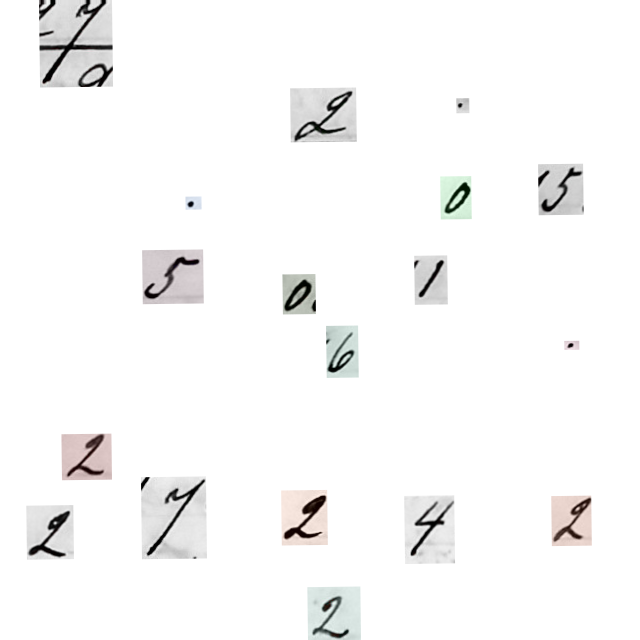 7
2 .
. 0 5
5 0 1
6 .
2
2 7 2 4 2
2